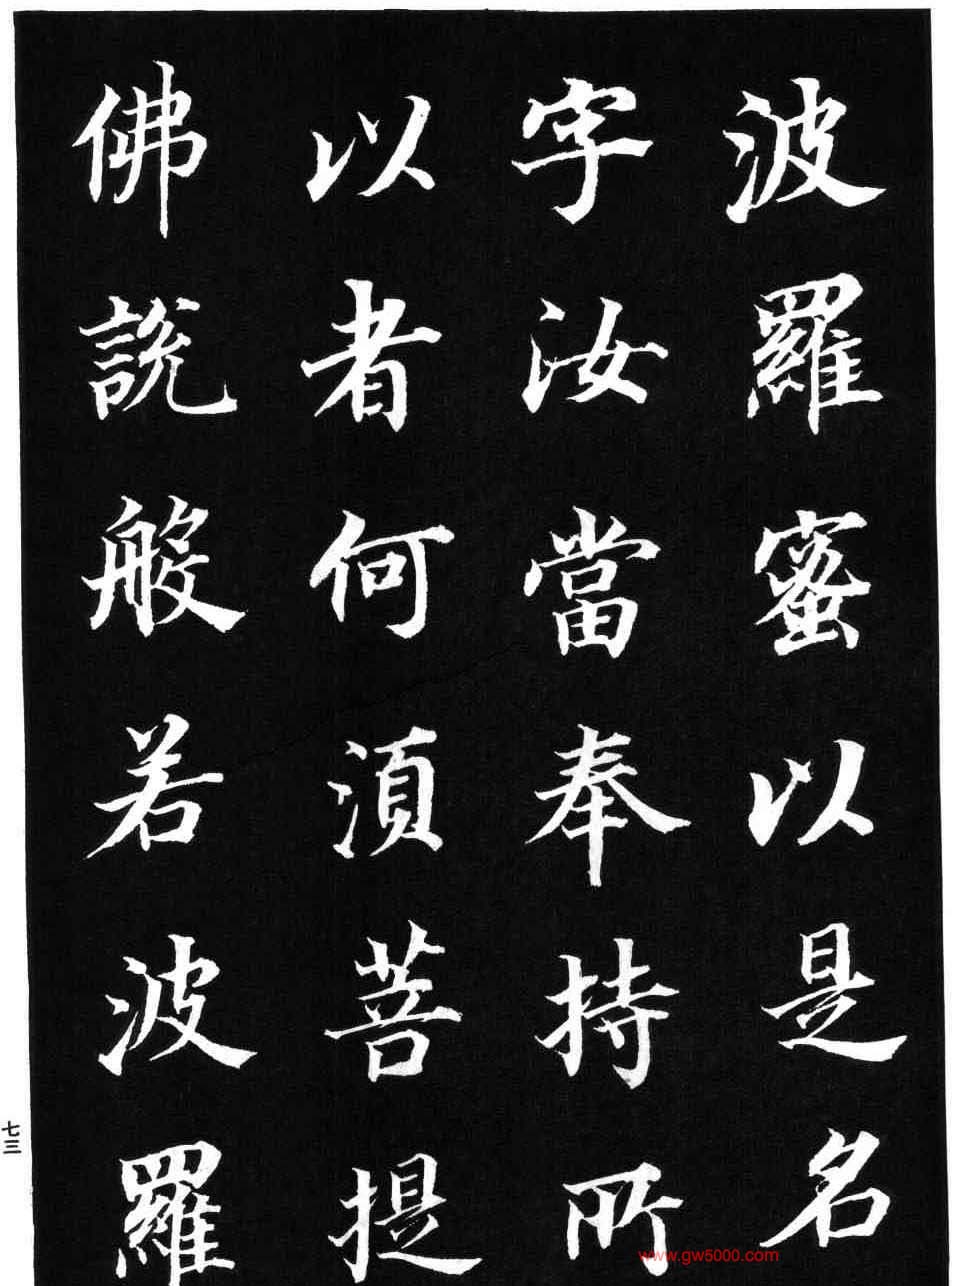 波羅蜜以是名
字汝當奉持所
以者何湏菩提
佛說般若波羅
七三
www.gw5000.com